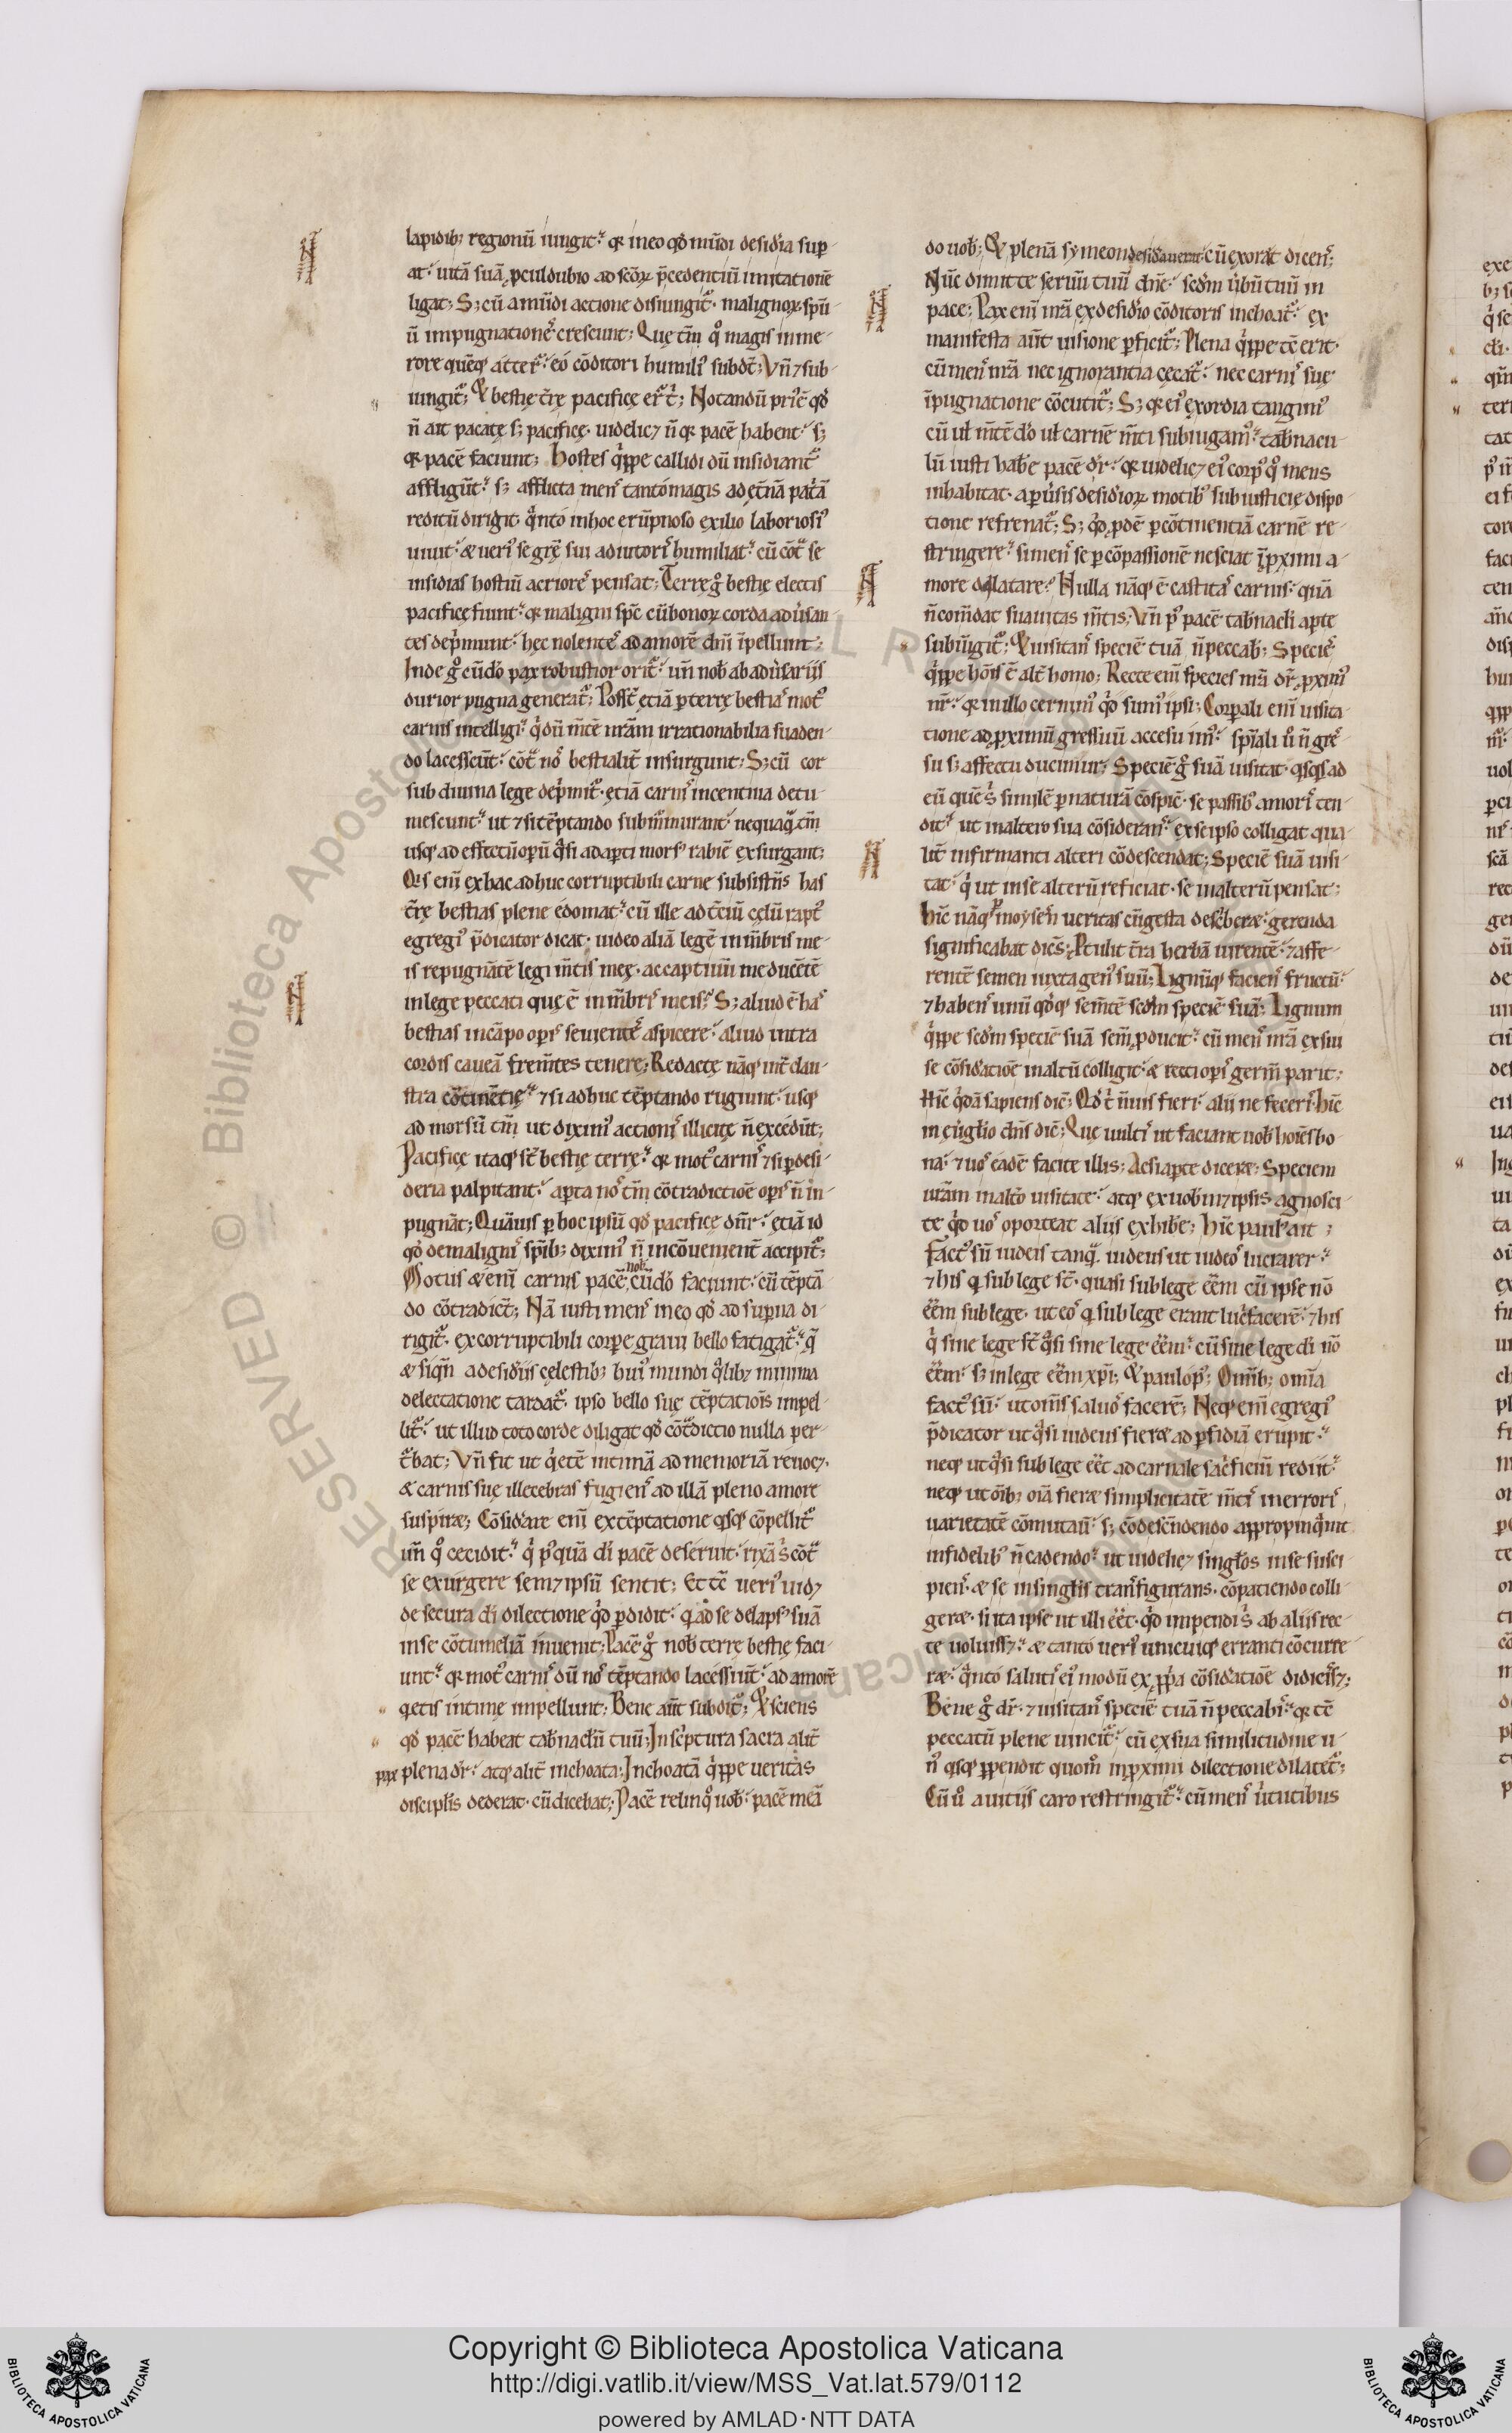 lapidib; regionū iungit᷑. qꝛ in eo qđ mūdi desid̕ia sup
at᷑. uitā suā ꝓculdubio ad scōꝝ p̄cedentiū imitationē
ligat; S; cū a mūdi actione disiungit᷑. malignoꝝ spū
ū impugnationes crescunt; Quę tm̄ qͦ magis in me
rore quēqꝫ atter᷑. eo cōditori humiliꝰ subdt̄; Vn̄ ⁊ sub
iungit᷑; Et bestię t̄rę pacificę er᷑ t̕; Notandū prīc̄ qđ
n̄ ait pacatę s; pacificę. uidelicꝫ n̄ qꝛ pacē habent. s;
qꝛ pacē faciunt; Hostes q̕ppe callidi dū insidiant᷑
affligūt. s; afflicta mens tanto magis ad ęt̄nā pat̕ā
reditū dirigit. qͣnto in hoc erūpnoso exilio laboriosiꝰ
uiuit. & ueriꝰ se grę̄ sui adiutoris humiliat. cū cōtͣ se
insidias hostiū acriores pensat; Terrę gͦ bestię electis
pacificę fiunt. qꝛ maligni spc̄ cū bonoꝝ corda aduersan
tes dep̕munt. hęc nolentes ad amorē dn̄i īpellunt;
Inde gͦ eūdo pax robustior orit᷑. un̄ nob̄ ab aduersariis
durior pugna generat᷑; Posst̄ ętiā p terrę bestias motꝰ
carnis intelligi. q̕ dū m̄tē nr̄am irrationabilia suaden
do lacessc̄ūt. cōtͣ nos bestialit̄ insurgunt; S; cū cor
sub diuina lege dep̕mit᷑. ętiā carnis incentiua detu
mescunt. ut ⁊ si tēptando subm̄murant. nequaqͣ tm̄
usqꝫ ad effectū oꝑū qͣsi ad apti morsꝰ rabiē exsurgant;
Qis enī ex hac adhuc corruptibili carne subsistn̄s has
t̄rę bestias plene edomat. cū ille ad t̄ciū cęlū raptꝰ
egregiꝰ p̄dicator dicat. uideo aliā legē in m̄bris me
is repugnātē legi m̄tis meę. ac captiuū me ducētē
in lege peccati quę ē in m̄bris meis; S; aliud ē has
bestias in cāpo oꝑis seuientes aspicere. aliud intra
cordis caueā frem̄tes tenere; Redactę nāqꝫ int̄ clau
stra cōtinētię. ⁊ si adhuc tēptando rugiunt. usqꝫ
ad morsū tm̄ ut diximꝰ actionis illicitę n̄ excedūt;
Pacificę itaqꝫ st̄ bestię terrę. qꝛ motꝰ carnis ⁊ si ꝑ desi
deria palpitant. aꝑta nos tm̄ cōtradictiōē oꝑis n̄ in
pugnāt; Quāuis ꝑ hoc ipsū qđ pacificę dn̄r. ętiā id
qđ de malignis spīb; diximꝰ n̄ incōuenient̄ accipit᷑;
Motus &enī carnis pacē nob̄ eūdo faciunt. cū tēptā
do cōtradict̄; Nā iusti mens in eo qđ ad superna di
rigit᷑. ex corruptibili corꝑe graui bello fatigat᷑. qͣ
& siqn̄ a desid̕iis cęlestib; huiꝰ mundi qͣlib; minima
delectatione tardat᷑. ipso bello suę tēptationis impel
lit᷑. ut illud toto corde diligat qđ cōtͣdictio nulla per
tͣbat; Vn̄ fit ut q̕etē intimā ad memoriā reuocꝫ.
& carnis suę illecebras fugiens ad illā pleno amore
suspiræ; Cōsid̕are enī ex tēptatione qsqꝫ cōpellit᷑
un̄ qͦ cecidit. q̕ pꝰquā di pacē deseruit. rixā s̕ cōtͣ
se exurgere semꝫipsū sentit; Et tc̄ ueriꝰ uidꝫ
de secura di dilectione qđ ꝑdidit. q ad se delapsꝰ suā
in se cōtumeliā inuenit; Pacē gͦ nob̄ terrę bestię faci
unt. qꝛ motꝰ carnis dū nos tēptando lacessiūt. ad amorē
qetis intimę impellunt; Bene aūt subdit᷑; Et sciens
qđ pacē habeat tab̄naclū tuū; In sc̕ptura sacra alit̄
pax plena dr̄. atqꝫ alit̄ inchoata; Inchoatā q̕ppe ueritas
disciplis dederat. cū dicebat; Pacē relinqͦ uob̄. pacē meā
do uob̄; Et plenā symeon desid̕auerat. cū exorat̄ dicens;
Nūc dimitte seruū tuū dn̄e. scdm ubū tuū in
pace; Pax enī nr̄a ex desid̕io cōditoris inchoat᷑. ex
manifesta aūt uisione ꝑficit᷑; Plena q̕ppe tc̄ erit.
cū mens nr̄a nec ignorantia cęcat᷑. nec carnis suę
īpugnatione cōcutit᷑; S; qꝛ eiꝰ exordia tangimꝰ
cū ul̄ m̄tē do ul̄ carnē m̄ti subiugamꝰ. tab̄nacu
lū iusti hab̄e pacē dr̄. qꝛ uidelicꝫ eiꝰ corpꝰ qͦ mens
inhabitat. a ꝑuersis desid̕ioꝝ motibꝰ sub iusticię dispo
tione refrenat᷑; S; qđ ꝓdē ꝑ cōtinentiā carnē re
stringere. si mens se ꝑ cōpassionē nesciat ī ꝓximi a
more dilatare? Nulla nāqꝫ ē castitas carnis. quā
n̄ com̄dat suauitas m̄tis; Vn̄ pꝰ pacē tab̄nacli apte
subiūgit᷑; Et uisitans speciē tuā n̄ peccab̄; Species
q̕ppe hōis ē alt̄ homo; Recte enī species nr̄a dr̄ ꝓximꝰ
nr̄. qꝛ in illo cernimꝰ qđ sumꝰ ipsi; Corꝑali enī uisita
tione ad ꝓximū gressuū accesu imꝰ. spīali uͦ n̄ gres
su s; affectu ducimur; Speciē gͦ suā uisitat. qsqs ad
eū quē s̕ similē ꝑ naturā cōspic̄. se passibꝰ amoris ten
dit. ut in altero sua cōsiderans. ex seipso colligat qua
lit̄ infirmanti alteri cōdescendat; Speciē suā uisi
tat. q̕ ut in se alterū reficiat. se in alterū pensat;
Hīc nāqꝫ ꝑ moysen ueritas cū gesta desc̕beræ. gerenda
significabat dicēs; Ptulit t̄ra herbā uirentē. ⁊ affe
rentē semen iuxta genꝰ suū; Lignūqꝫ faciens fructū.
⁊ habens unū qđqꝫ sem̄tē scdm speciē suā; Lignum
q̕ppe scdm speciē suā sem̄ ꝓducit. cū mens nr̄a ex sui
se cōsid̕atiōē in altū colligit. & recti oꝑis germ̄ parit;
Hīc qͣdā sapiens dic̄; Qđ t̕ n̄ uis fieri. alii ne feceris. hīc
in eu̕glio dn̄s dic̄; Quę uultis ut faciant nob̄ hoīes bo
na. ⁊ uos eadē facite illis; Ac si aꝑte diceræ; Speciem
ur̄am in alto uisitate. atqꝫ ex uob̄ mꝫipsis agnosci
te qđ uos oporteat aliis exhib̄e; Hīc paulꝰ ait;
Factꝰ sū iudeis tanqͣ iudeus ut iudeos lucrarer.
⁊ his q sub lege st̄. quasi sub lege eēm cū ipse nō
eēm sub lege. ut eos q sub lege erant luc̕facerē. ⁊ his
q̕ sine lege st̄ qͣsi sine lege eēm. cū sine lege di nō
eēm. s; in lege eēm xp̄i; Et paulopꝰ; Om̄ib; om̄ia
factꝰ sū. ut om̄s saluos facerē; Neqꝫ enī egregiꝰ
p̄dicator ut qͣsi iudeus fieræ ad ꝑfidiā erupit.
neqꝫ ut qͣsi sub lege eēt ad carnale sac̕ficiū rediit.
neqꝫ ut ōib; oīa fieræ simplicitatē m̄tis in erroris
uarietatē cōmutau̕. s; cōdescēndendo appropinqͣuit
infidelibꝰ n̄ cadendo. ut uidelicꝫ singlos in se susci
piens. & se in singlis transfigurans. cōpatiendo colli
geræ. si ita ipse ut illi eēt. qđ impendi s̕ ab aliis rec
te uoluissꝫ. & tanto ueriꝰ unicuiqꝫ erranti cōcurre
ræ. qͣnto salutis eiꝰ modū ex ꝓpa cōsid̕atiōē didicissꝫ;
Bene gͦ dr̄. ⁊ uisitans speciē tuā n̄ peccabis. qꝛ tc̄
peccatū plene uincit᷑. cū ex sua similitudine u
nꝰ qsqꝫ ꝑpendit quom̄ in ꝓximi dilectione dilatet᷑;
Cū uͦ a uitiis caro restringit᷑. cū mens u̕tutibus
Copyright © Biblioteca Apostolica Vaticana
http://digi.vatlib.it/view/MSS_Vat.lat.579/0112
powered by AMLAD·NTT DATA
BIBLIOTECA APOSTOLICA VATICANA
BIBLIOTECA APOSTOLICA VATICANA